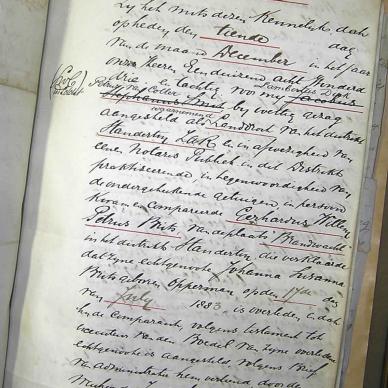 Zij het mits dezen Kennelijk, dat
op heden den tiende dag
van de maand December in het jaar
onzes Heeren Een duizend acht Honderd
Drie en tachtig voor my Jacobus
Petrus van Collen Lambertus Dyk
by wettig gezag
waarnemend
aangesteld als Landdrost van het distrikt
Standerton ZAR en in afwezigheid van
eenen Notaris Publiek in dit Distrikt
praktiseerende in tegenwoordigheid van
de ondergetekende getuigen in persoon
Kwam en compareerde Gerhardus Willem
Petrus Brits van de plaats Brandwacht
in het distrikt Standerton, die verklaarde
dat zyne echtgenoote Johanna Susanna
Brits geboren Opperman op den 17de der
van July 1883 is overleden en dat
hy de Comparant, volgens testament tot
executeur van den Boedel van zyne overleden
echtgenoote is aangesteld volgens Brief
van Administratie hem verleend door de